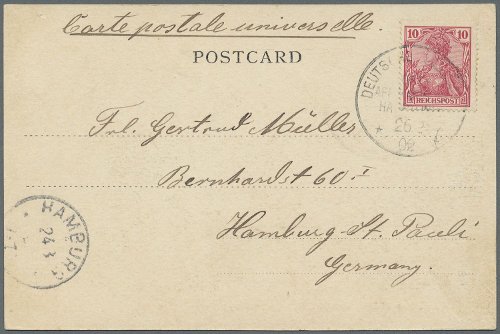 Carte postale universelle.
POSTCARD
10 10
REICHSPOST
26
02
Frl. Gertrud Müller
Bernhardst 60 I
Hamburg-St. Pauli
Germany.
HAMBURG
24.